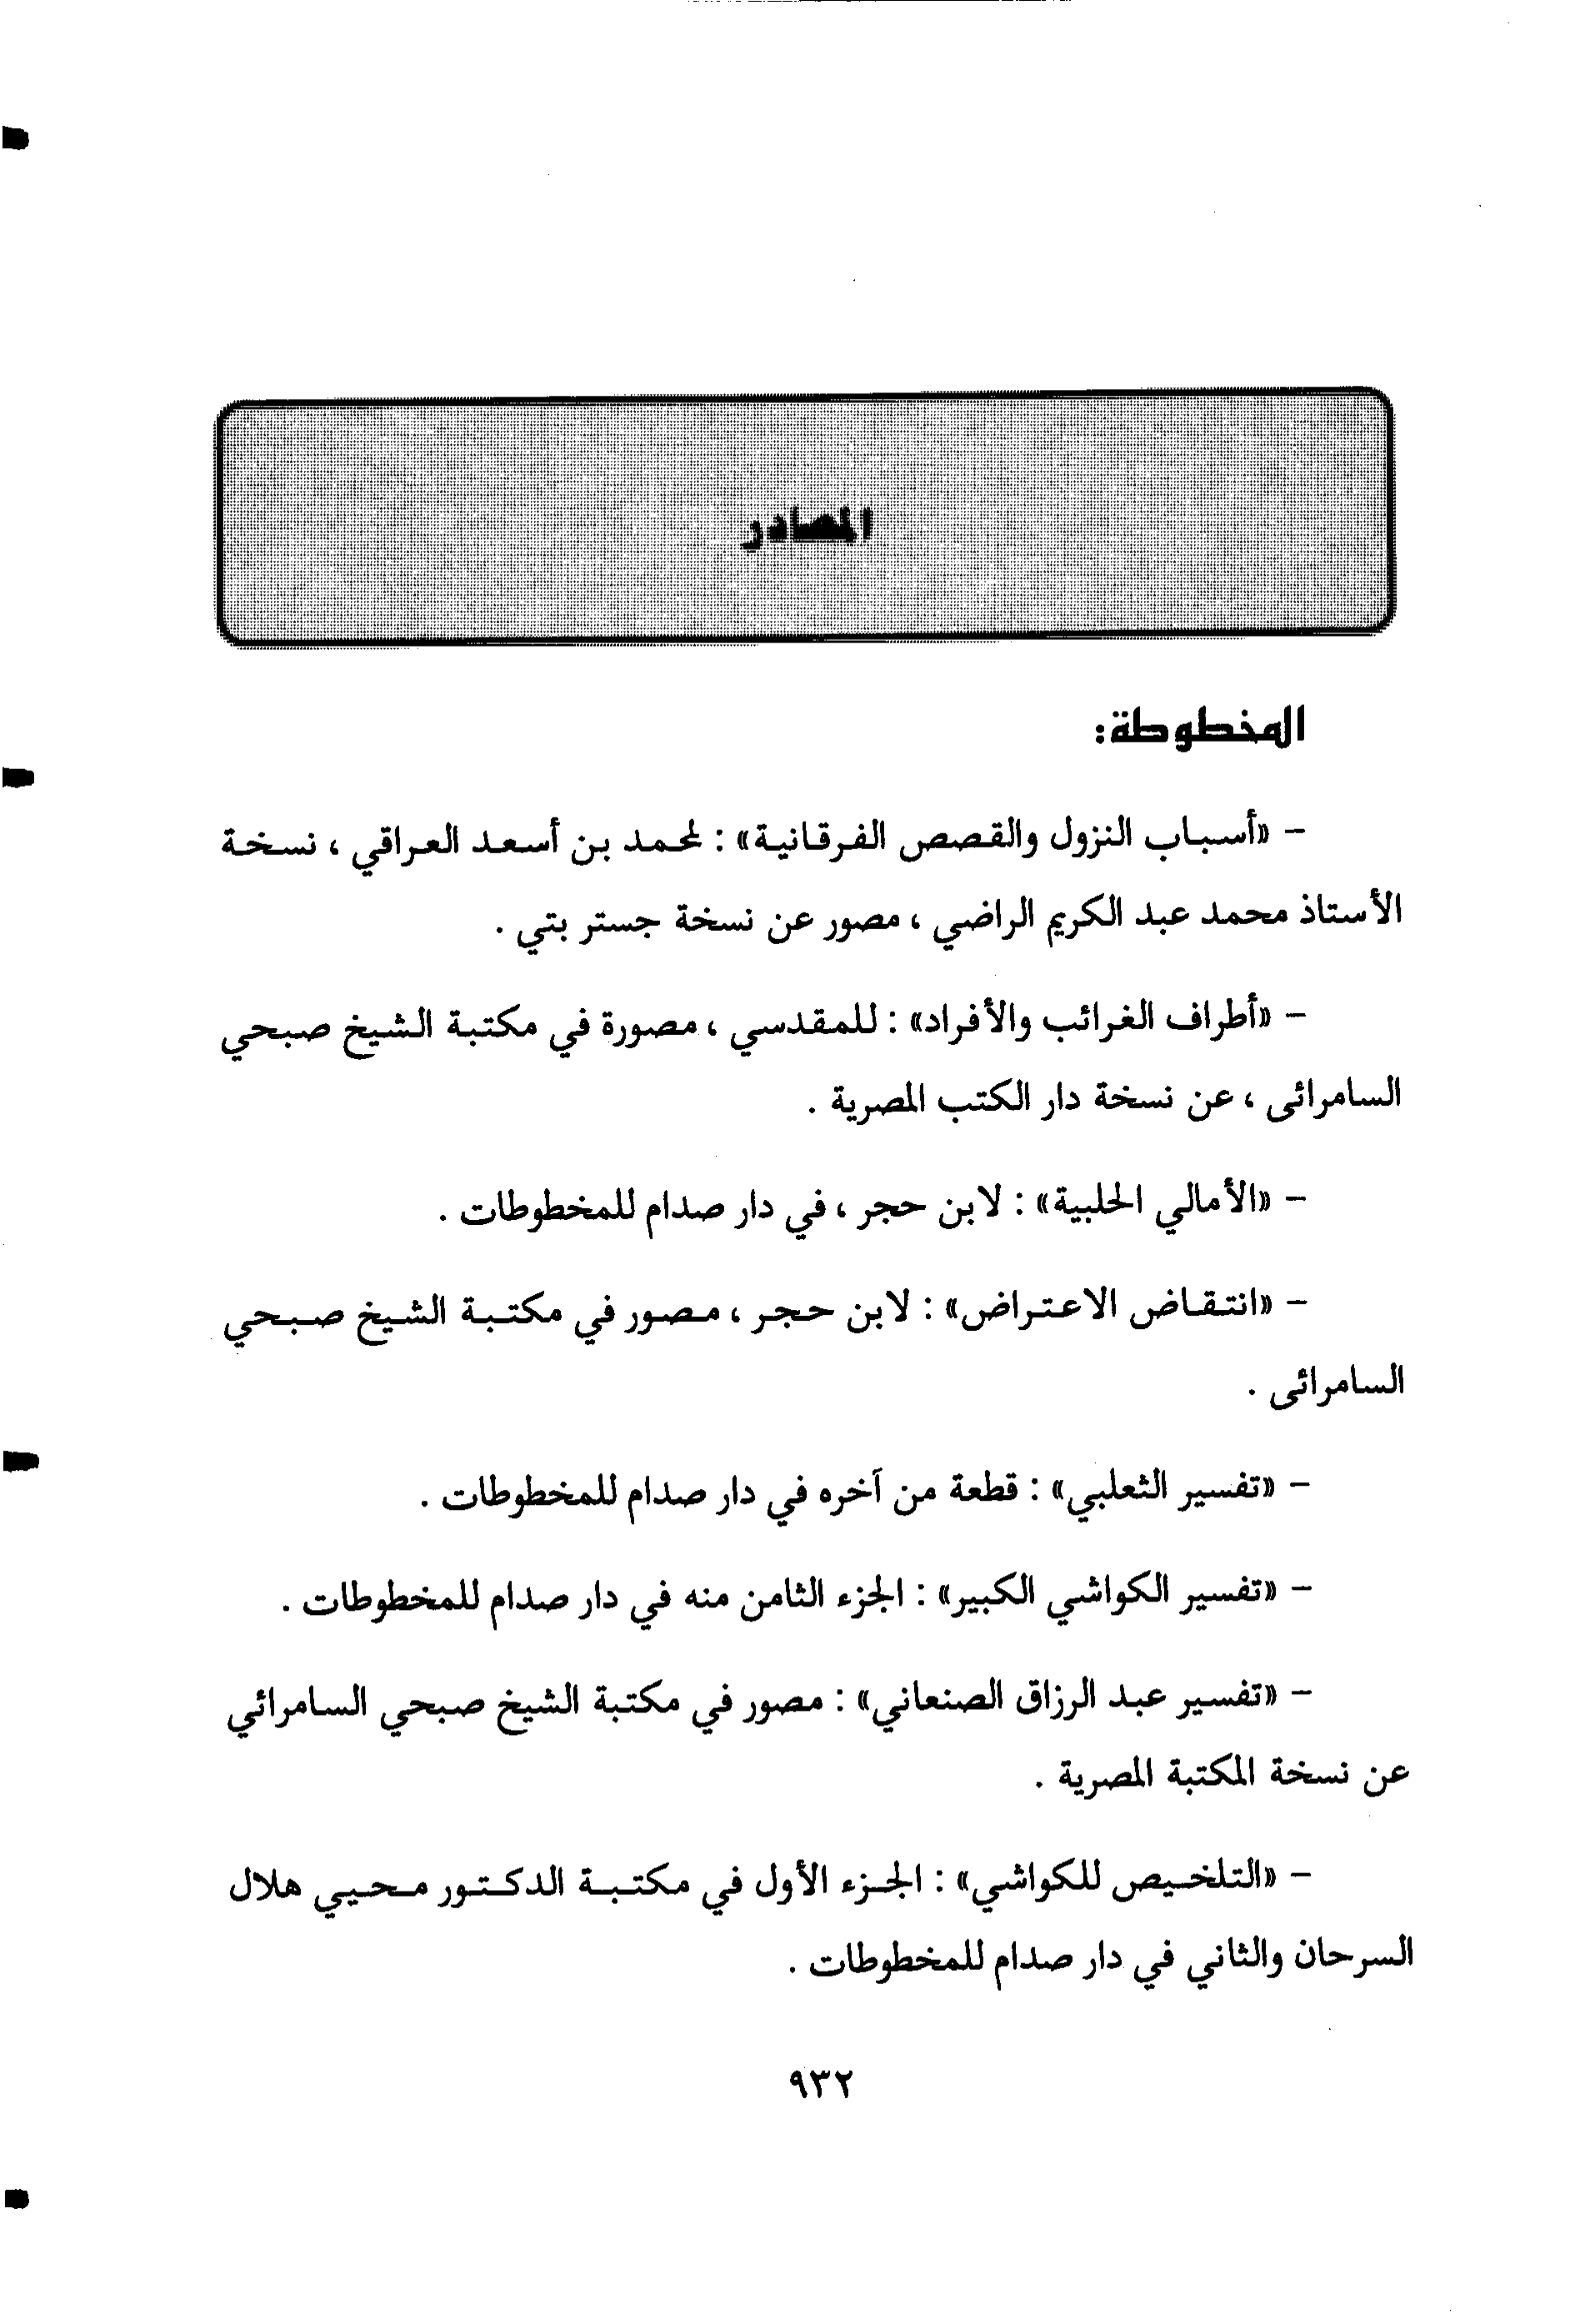 المصادر
المخطوطة:
- «أسباب النزول والقصص الفرقانية» : لمحمد بن أسعد العراقي ، نسخة
الأستاذ محمد عبد الكريم الراضي ، مصور عن نسخة جستر بتي .
- «أطراف الغرائب والأفراد» : للمقدسي ، مصورة في مكتبة الشيخ صبحي
السامرائى ، عن نسخة دار الكتب المصرية .
- «الأمالي الحلبية» : لابن حجر ، في دار صدام للمخطوطات .
- «انتقاض الاعتراض» : لابن حجر ، مصور في مكتبة الشيخ صبحي
السامرائى .
- «تفسير الثعلبي» : قطعة من آخره في دار صدام للمخطوطات .
- «تفسير الكواشي الكبير» : الجزء الثامن منه في دار صدام للمخطوطات .
- «تفسير عبد الرزاق الصنعاني» : مصور في مكتبة الشيخ صبحي السامرائي
عن نسخة المكتبة المصرية .
- «التلخيص للكواشي» : الجزء الأول في مكتبة الدكتور محيي هلال
السرحان والثاني في دار صدام للمخطوطات .
٩٣٢